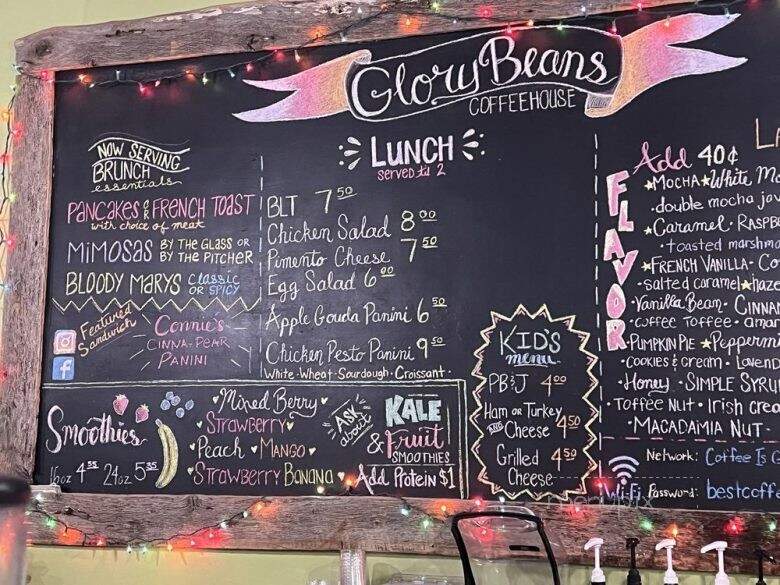 Glory Beans
COFFEEHOUSE
NOW SERVING
BRUNCH
essentials
PANCAKES OR FRENCH TOAST
with choice of meat
MIMOSAS BY THE GLASS OR
BY THE PITCHER
BLOODY MARYS Classic
OR SPICY
Featured
Sandwich
Connie's
CINNA-PEAR
PANINI
LUNCH
SERVED til 2
BLT 7.50
Chicken Salad 8.00
Pimento Cheese 7.50
Egg Salad 6.00
Apple Gouda Panini 6.50
Chicken Pesto Panini 9.50
White · Wheat · Sourdough · Croissant
Smoothies
16oz 4.35 24oz 5.35
Mixed Berry
STRAWBERRY
Peach MANGO
Strawberry Banana
ASK
about
KALE
& Fruit
SMOOTHIES
Add Protein $1
KID'S
menu
PB&J 4.00
Ham or Turkey
AND Cheese 4.50
Grilled
Cheese 4.50
FLAVOR
Add 40¢
MOCHA White Mo
double mocha ja
Caramel · RASPB
toasted marshma
FRENCH VANILLA · Co
salted caramel haze
Vanilla Bean · CINNA
COFFEE TOFFEE · ama
PUMPKIN PIE Peppermi
COOKIES & CREAM · LAVEND
Honey · SIMPLE SYRU
TOFFEE NUT · Irish crea
MACADAMIA NUT
Network: Coffee Is G
WiFi Password: bestcoff